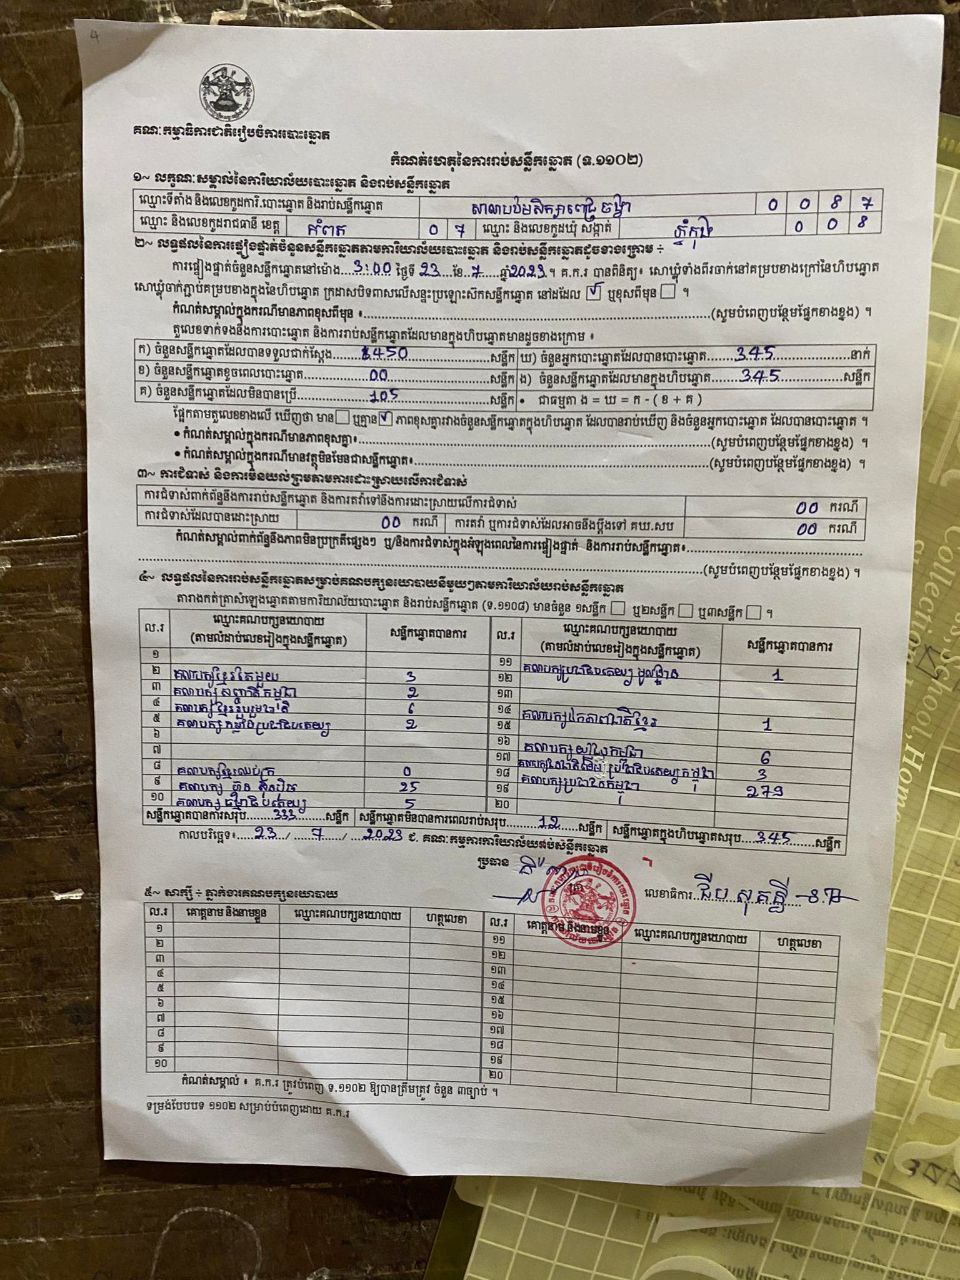 គណៈកម្មាធិការជាតិរៀបចំការបោះឆ្នោត
កំណត់ហេតុនៃការរាប់សន្លឹកឆ្នោត (ទ.១១០២)
១~ លក្ខណៈសម្គាល់នៃការិយាល័យបោះឆ្នោត និងរាប់សន្លឹកឆ្នោត
ឈ្មោះទីតាំង និងលេខកូដការិ.បោះឆ្នោត និងរាប់សន្លឹកឆ្នោត សាលាបឋមសិក្សា 0 0 8 7
ឈ្មោះ និងលេខកូដរាជធានី ខេត្ត កំពត 0 7 ឈ្មោះ និងលេខកូដឃុំ សង្កាត់ 0 0 8
២~ លទ្ធផលនៃការផ្ទៀងផ្ទាត់ចំនួនសន្លឹកឆ្នោតតាមការិយាល័យបោះឆ្នោត និងរាប់សន្លឹកឆ្នោតដូចខាងក្រោម ÷
ការផ្ទៀងផ្ទាត់ចំនួនសន្លឹកឆ្នោតនៅម៉ោង....3:00 ថ្ងៃទី 23 ...ខែ...7......ឆ្នាំ2023។ គ.ក.រ បានពិនិត្យ៖ សោឃ្លុំទាំងពីរចាក់នៅគម្របខាងក្រៅនៃហិបឆ្នោត
សោឃ្លុំចាក់ភ្ជាប់គម្របខាងក្នុងនៃហិបឆ្នោត ក្រដាសបិទពាសលើសន្ទះប្រឡោះសឹកសន្លឹកឆ្នោត នៅដដែល ☑ ឬខុសពីមុន ☐ ។
កំណត់សម្គាល់ក្នុងករណីមានភាពខុសពីមុន ៖ (សូមបំពេញបន្ថែមផ្នែកខាងខ្នង) ។
តួលេខទាក់ទងនឹងការបោះឆ្នោត និងការរាប់សន្លឹកឆ្នោតដែលមានក្នុងហិបឆ្នោតមានដូចខាងក្រោម ៖
ក) ចំនួនសន្លឹកឆ្នោតដែលបានទទួលជាក់ស្តែង 450 សន្លឹក ឃ) ចំនួនអ្នកបោះឆ្នោតដែលបានបោះឆ្នោត 345 នាក់
ខ) ចំនួនសន្លឹកឆ្នោតខូចពេលបោះឆ្នោត 00 សន្លឹក ង) ចំនួនសន្លឹកឆ្នោតដែលមានក្នុងហិបឆ្នោត 345 សន្លឹក
គ) ចំនួនសន្លឹកឆ្នោតដែលមិនបានប្រើ 105 សន្លឹក • ជាធម្មតា ង = ឃ = ក - ( ខ + គ )
ផ្អែកតាមតួលេខខាងលើ ឃើញថា មាន ☐ ឬគ្មាន ☑ ភាពខុសគ្នារវាងចំនួនសន្លឹកឆ្នោតក្នុងហិបឆ្នោត ដែលបានរាប់ឃើញ និងចំនួនអ្នកបោះឆ្នោត ដែលបានបោះឆ្នោត ។
• កំណត់សម្គាល់ក្នុងករណីមានភាពខុសគ្នា៖ (សូមបំពេញបន្ថែមផ្នែកខាងខ្នង) ។
• កំណត់សម្គាល់ក្នុងករណីមានវត្ថុមិនមែនជាសន្លឹកឆ្នោត៖ (សូមបំពេញបន្ថែមផ្នែកខាងខ្នង) ។
៣~ ការជំទាស់ និងការមិនយល់ព្រមតាមការដោះស្រាយលើការជំទាស់
ការជំទាស់ពាក់ព័ន្ធនឹងការរាប់សន្លឹកឆ្នោត និងការតវ៉ាទៅនឹងការដោះស្រាយលើការជំទាស់ 00 ករណី
ការជំទាស់ដែលបានដោះស្រាយ 00 ករណី ការតវ៉ា ឬការជំទាស់ដែលអាចនឹងប្តឹងទៅ គឃ.សប 00 ករណី
កំណត់សម្គាល់ពាក់ព័ន្ធនឹងភាពមិនប្រក្រតីផ្សេងៗ ឬ/និងការជំទាស់ក្នុងអំឡុងពេលនៃការផ្ទៀងផ្ទាត់ និងការរាប់សន្លឹកឆ្នោត៖
(សូមបំពេញបន្ថែមផ្នែកខាងខ្នង) ។
៤~ លទ្ធផលនៃការរាប់សន្លឹកឆ្នោតសម្រាប់គណបក្សនយោបាយនីមួយៗតាមការិយាល័យរាប់សន្លឹកឆ្នោត
តារាងកត់ត្រាសំឡេងឆ្នោតតាមការិយាល័យបោះឆ្នោត និងរាប់សន្លឹកឆ្នោត (ទ.១១០៨) មានចំនួន ១សន្លឹក ☐ ឬ២សន្លឹក ☐ ឬ៣សន្លឹក ☐ ។
ល.រ ឈ្មោះគណបក្សនយោបាយ (តាមលំដាប់លេខរៀងក្នុងសន្លឹកឆ្នោត) សន្លឹកឆ្នោតបានការ ល.រ ឈ្មោះគណបក្សនយោបាយ (តាមលំដាប់លេខរៀងក្នុងសន្លឹកឆ្នោត) សន្លឹកឆ្នោតបានការ
១ ១១
២ គណបក្សខ្មែរតែមួយ 3 ១២ គណបក្សប្រជាធិបតេយ្យមូលដ្ឋាន 1
៣ គណបក្សសញ្ជាតិកម្ពុជា 2 ១៣
៤ គណបក្សខ្មែររួបរួមជាតិ 6 ១៤ គណបក្សឯកភាពជាតិខ្មែរ 1
៥ គណបក្សកម្លាំងប្រជាធិបតេយ្យ 2 ១៥
៦ ១៦ គណបក្សយុវជនកម្ពុជា 6
៧ ១៧ 3
៨ គណបក្សខ្មែរឈប់ក្រ 0 ១៨ គណបក្សប្រជាជនកម្ពុជា 279
៩ គណបក្ស ហ៊្វុនស៊ិនប៉ិច 25 ១៩
១០ គណបក្ស ធម្មាធិបតេយ្យ 5 ២០
សន្លឹកឆ្នោតបានការសរុប 333 សន្លឹក សន្លឹកឆ្នោតមិនបានការពេលរាប់សរុប 12 សន្លឹក សន្លឹកឆ្នោតក្នុងហិបឆ្នោតសរុប 345 សន្លឹក
កាលបរិច្ឆេទ៖ 23 / 7 / 2023 ៩. គណៈកម្មការការិយាល័យរាប់សន្លឹកឆ្នោត
ប្រធាន
លេខាធិការ
៥~ សាក្សី ÷ ភ្នាក់ងារគណបក្សនយោបាយ
ល.រ គោត្តនាម និងនាមខ្លួន ឈ្មោះគណបក្សនយោបាយ ហត្ថលេខា ល.រ គោត្តនាម និងនាមខ្លួន ឈ្មោះគណបក្សនយោបាយ ហត្ថលេខា
១ ១១
២ ១២
៣ ១៣
៤ ១៤
៥ ១៥
៦ ១៦
៧ ១៧
៨ ១៨
៩ ១៩
១០ ២០
កំណត់សម្គាល់ ៖ គ.ក.រ ត្រូវបំពេញ ទ.១១០២ ឱ្យបានត្រឹមត្រូវ ចំនួន ៣ច្បាប់ ។
ទម្រង់បែបបទ ១១០២ សម្រាប់បំពេញដោយ គ.ក.រ